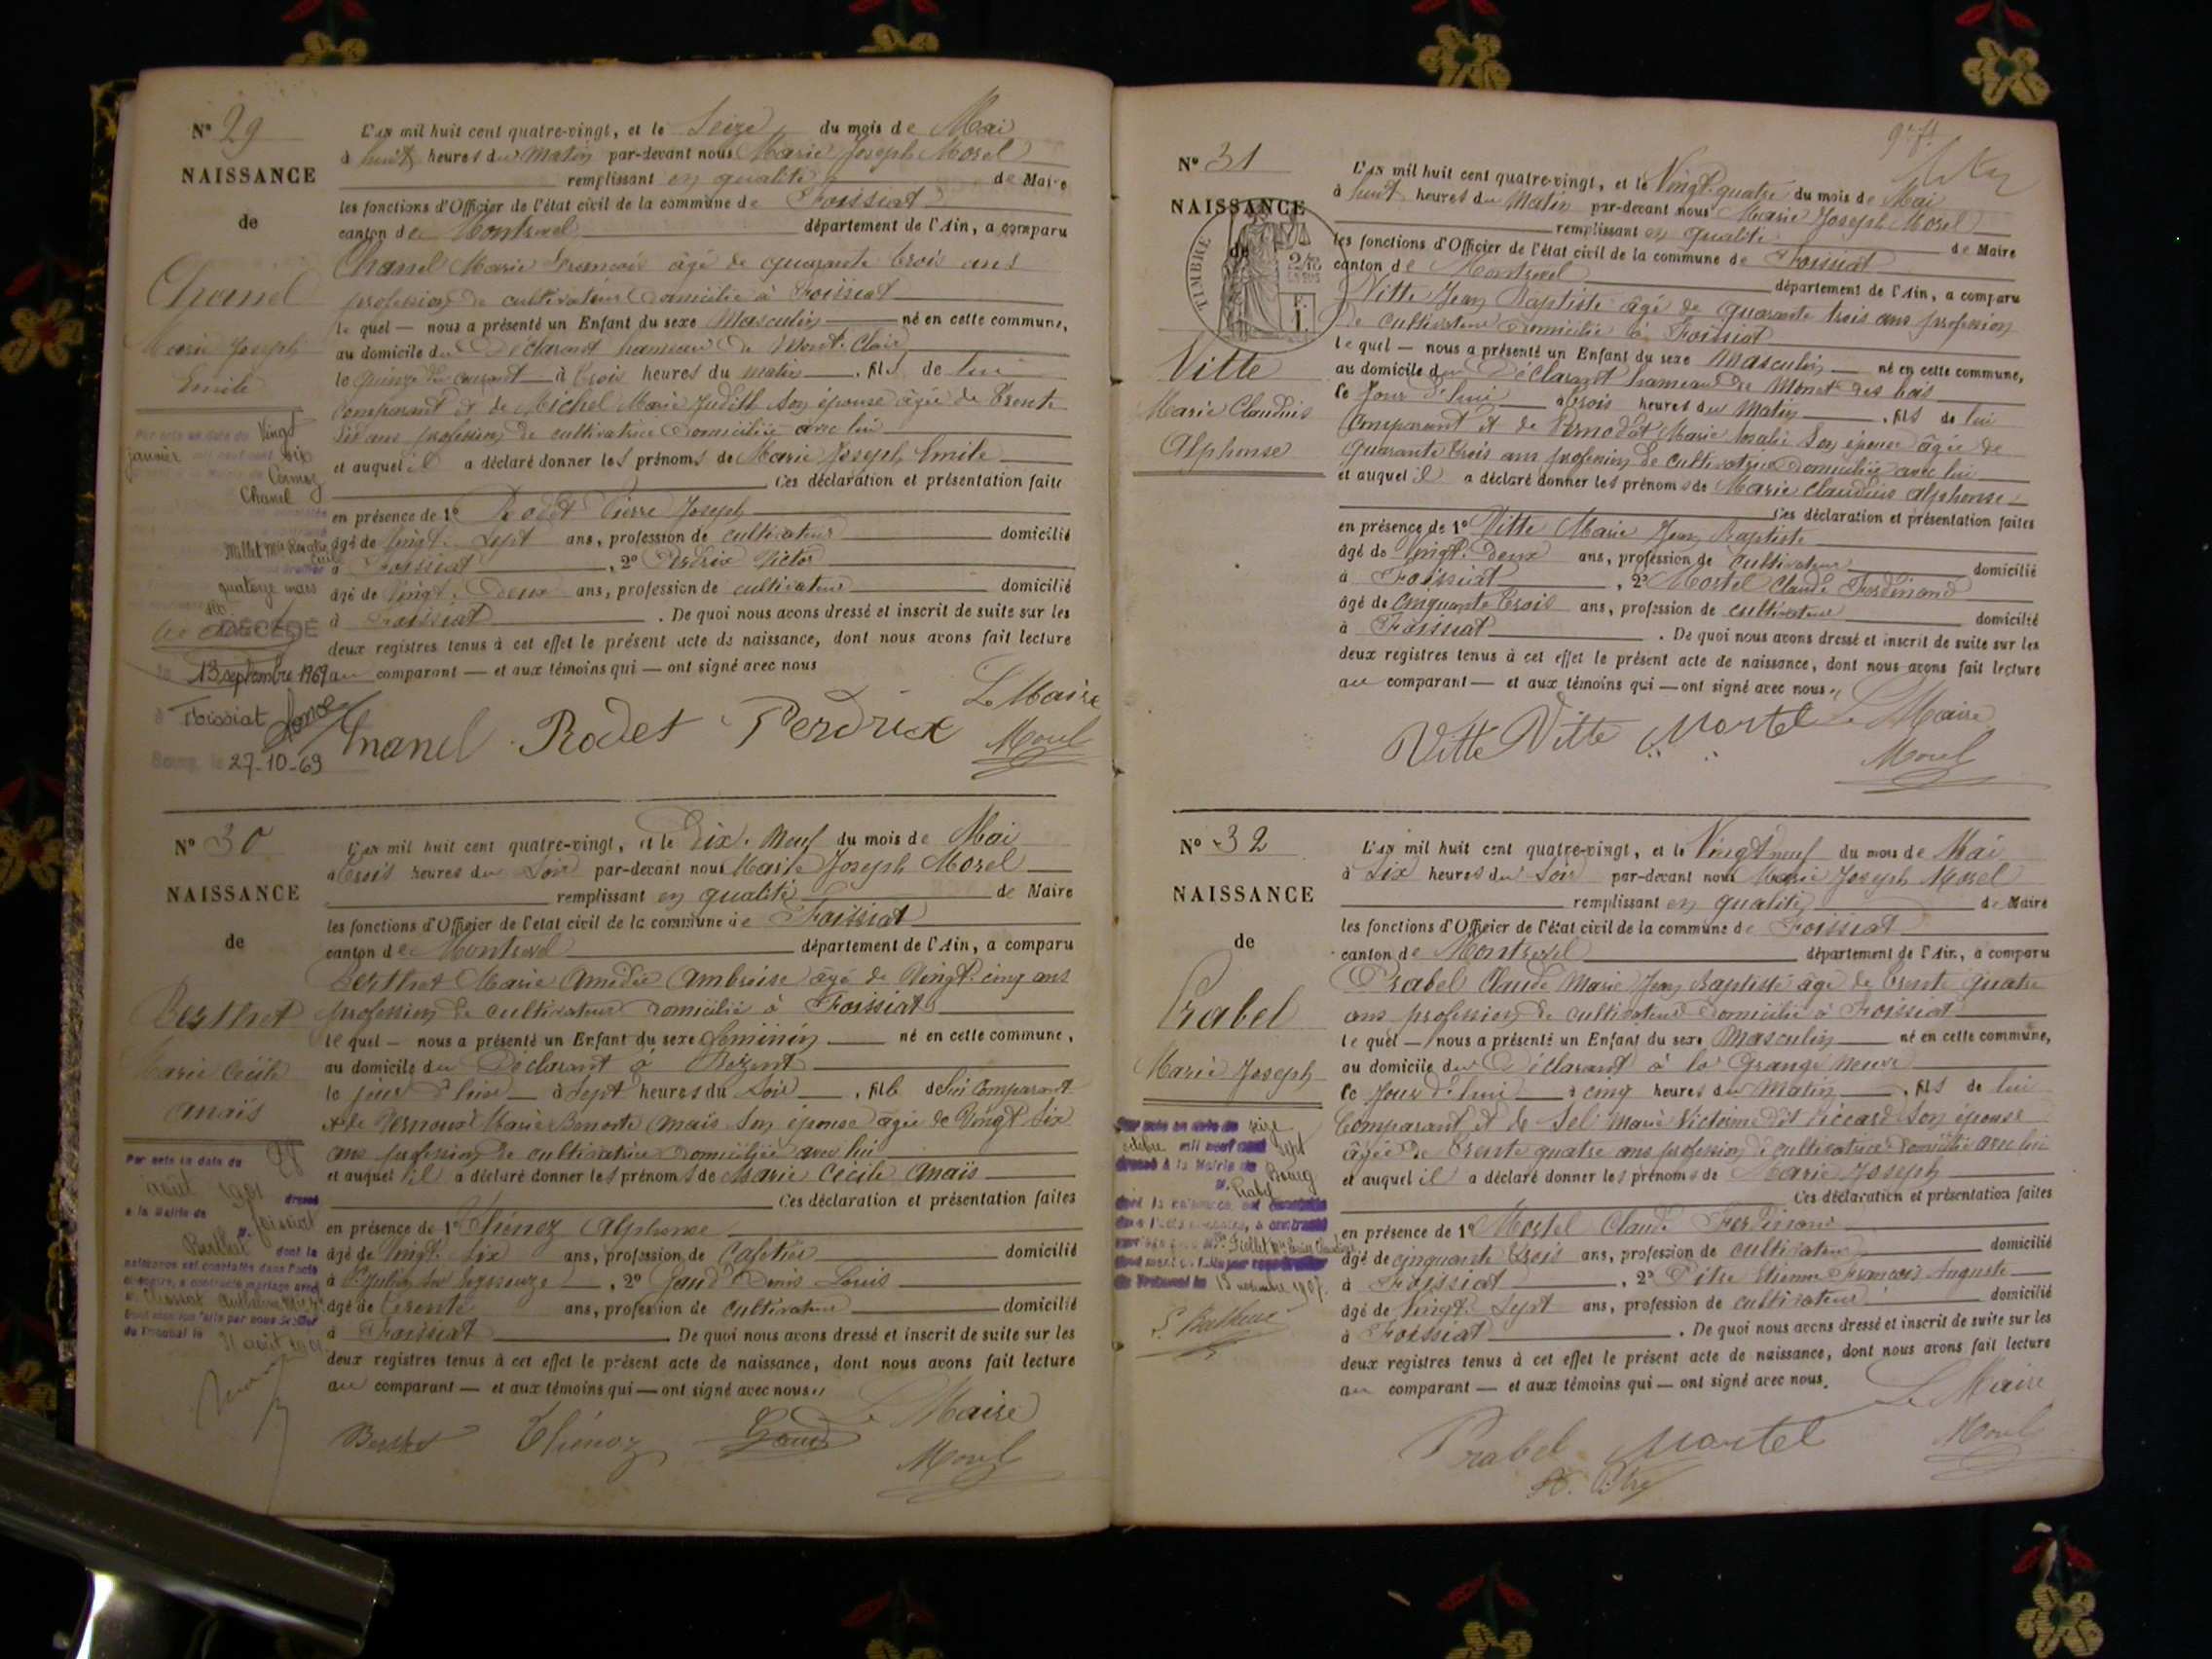 N° 29
NAISSANCE
de
Chanel
Marie Joseph
Emile
L'an mil huit cent quatre-vingt, et le Seize du mois de Mai
à huit heures du Matin par-devant nous Marie Joseph Morel
remplissant en qualité de Maire
les fonctions d'Officier de l'état civil de la commune de Foissiat
canton de Montrevel département de l'Ain, a comparu
Chanel Marie François âgé de quarante trois ans
profession de cultivateur domicilié à Foissiat
le quel — nous a présenté un Enfant du sexe Masculin né en cette commune,
au domicile du Déclarant hameau de Mont-Clair
le quinze du courant à trois heures du matin, fils de lui
Comparant et de Michel Marie Judith son épouse âgée de trente
six ans profession de cultivatrice domiciliée avec lui
et auquel il a déclaré donner les prénoms de Marie Joseph Emile
Ces déclaration et présentation faites
en présence de 1° Rodet Pierre Joseph
âgé de Vingt-Sept ans, profession de cultivateur domicilié
à Foissiat, 2° Perdrix Victor
âgé de Vingt-deux ans, profession de cultivateur domicilié
à Foissiat. De quoi nous avons dressé et inscrit de suite sur les
deux registres tenus à cet effet le présent acte de naissance, dont nous avons fait lecture
au comparant — et aux témoins qui — ont signé avec nous
Le Maire
Chanel Rodet Perdrix Morel
Par acte en date du Vingt
janvier dix
Chanel
quatorze mars
DÉCÉDÉ
le 13 septembre 1969
à Foissiat
Bourg, le 27-10-69
N° 30
NAISSANCE
de
Berthet
Marie Cécile
Anaïs
L'an mil huit cent quatre-vingt, et le Dix-Neuf du mois de Mai
à trois heures du Soir par-devant nous Marie Joseph Morel
remplissant en qualité de Maire
les fonctions d'Officier de l'état civil de la commune de Foissiat
canton de Montrevel département de l'Ain, a comparu
Berthet Marie Amédée Ambroise âgé de Vingt-cinq ans
profession de cultivateur domicilié à Foissiat
le quel — nous a présenté un Enfant du sexe féminin né en cette commune,
au domicile du Déclarant à
le jour d'hier à sept heures du Soir, fille de lui Comparant
et de Marie Benoite Anaïs son épouse âgée de Vingt-Six
ans profession de cultivatrice domiciliée avec lui
et auquel il a déclaré donner les prénoms de Marie Cécile Anaïs
Ces déclaration et présentation faites
en présence de 1° Thénoz Alphonse
âgé de Vingt-Six ans, profession de Cafetier domicilié
à St Julien sur Reyssouze, 2° Gaud Denis Louis
âgé de trente ans, profession de cultivateur domicilié
à Foissiat. De quoi nous avons dressé et inscrit de suite sur les
deux registres tenus à cet effet le présent acte de naissance, dont nous avons fait lecture
au comparant — et aux témoins qui — ont signé avec nous
Le Maire
Berthet Thénoz Gaud Morel
Par acte en date du 28
août 1901 dressé
à la Mairie de Foissiat
dont la
naissance est constatée dans l'acte
ci-contre, a contracté mariage avec
du Tribunal le 31 août 1901
N° 31
NAISSANCE
de
TIMBRE
Vitte
Marie Claudius
Alphonse
L'an mil huit cent quatre-vingt, et le Vingt-quatre du mois de Mai
à huit heures du Matin par-devant nous Marie Joseph Morel
remplissant en qualité de Maire
les fonctions d'Officier de l'état civil de la commune de Foissiat
canton de Montrevel département de l'Ain, a comparu
Vitte Jean Baptiste âgé de quarante trois ans profession
de cultivateur domicilié à Foissiat
le quel — nous a présenté un Enfant du sexe Masculin né en cette commune,
au domicile du Déclarant hameau de Monet des bois
le Jour d'hui à trois heures du Matin, fils de lui
Comparant et de Marie son épouse âgée de
quarante trois ans profession de cultivatrice domiciliée avec lui
et auquel il a déclaré donner les prénoms de Marie Claudius Alphonse
Ces déclaration et présentation faites
en présence de 1° Vitte Marie Jean Baptiste
âgé de Vingt-deux ans, profession de Cultivateur domicilié
à Foissiat, 2° Mortel Claude Ferdinand
âgé de Cinquante trois ans, profession de cultivateur domicilié
à Foissiat. De quoi nous avons dressé et inscrit de suite sur les
deux registres tenus à cet effet le présent acte de naissance, dont nous avons fait lecture
au comparant — et aux témoins qui — ont signé avec nous
Vitte Vitte Mortel Le Maire
Morel
N° 32
NAISSANCE
de
Prabel
Marie Joseph
L'an mil huit cent quatre-vingt, et le Vingt neuf du mois de Mai
à Six heures du Soir par-devant nous Marie Joseph Morel
remplissant en qualité de Maire
les fonctions d'Officier de l'état civil de la commune de Foissiat
canton de Montrevel département de l'Ain, a comparu
Prabel Claude Marie Jean Baptiste âgé de trente quatre
ans profession de cultivateur domicilié à Foissiat
le quel — nous a présenté un Enfant du sexe Masculin né en cette commune,
au domicile du Déclarant à la Grange neuve
le Jour d'hui à cinq heures du Matin, fils de lui
Comparant et de Sel Marie Victorine dit Piccard son épouse
âgée de trente quatre ans profession de cultivatrice domiciliée avec lui
et auquel il a déclaré donner les prénoms de Marie Joseph
Ces déclaration et présentation faites
en présence de 1° Mortel Claude Ferdinand
âgé de cinquante trois ans, profession de cultivateur domicilié
à Foissiat, 2° Pitre Etienne François Auguste
âgé de Vingt-Sept ans, profession de cultivateur domicilié
à Foissiat. De quoi nous avons dressé et inscrit de suite sur les
deux registres tenus à cet effet le présent acte de naissance, dont nous avons fait lecture
au comparant — et aux témoins qui — ont signé avec nous.
Le Maire
Prabel Mortel Morel
Par acte en date du seize
octobre mil neuf cent sept
dressé à la Mairie de Bourg
M. Prabel
du Tribunal le 13 novembre 1907